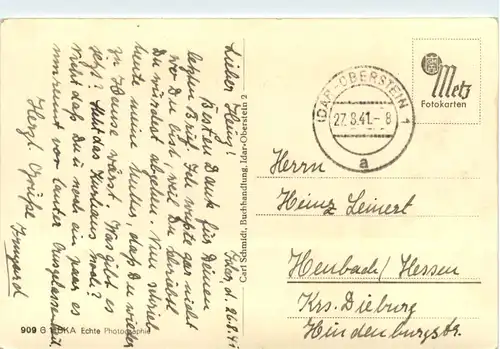 Idar, d. 26.8.41
Lieber Heinz!
Besten Dank für Deinen
letzten Brief. Ich wußte gar nicht
wo Du bist, weil Du schriebst
Du würdest abgehen. Nun schrieb
heute meine Mutter, daß Du wieder
zu Hause wärst. Was gibt es
Hat das Kurhaus noch?
nicht daß Du noch ein paar
vor lauter
Herzl. Grüße
Irmgard
909 G Echte Photographie
Carl Schmidt, Buchhandlung, Idar-Oberstein 2
IDAR-OBERSTEIN 1
27.8.41.-8
a
Metz
Fotokarten
Herrn
Heinz Leinert
Heubach/Hessen
Krs. Dieburg
Hindenburgstr.